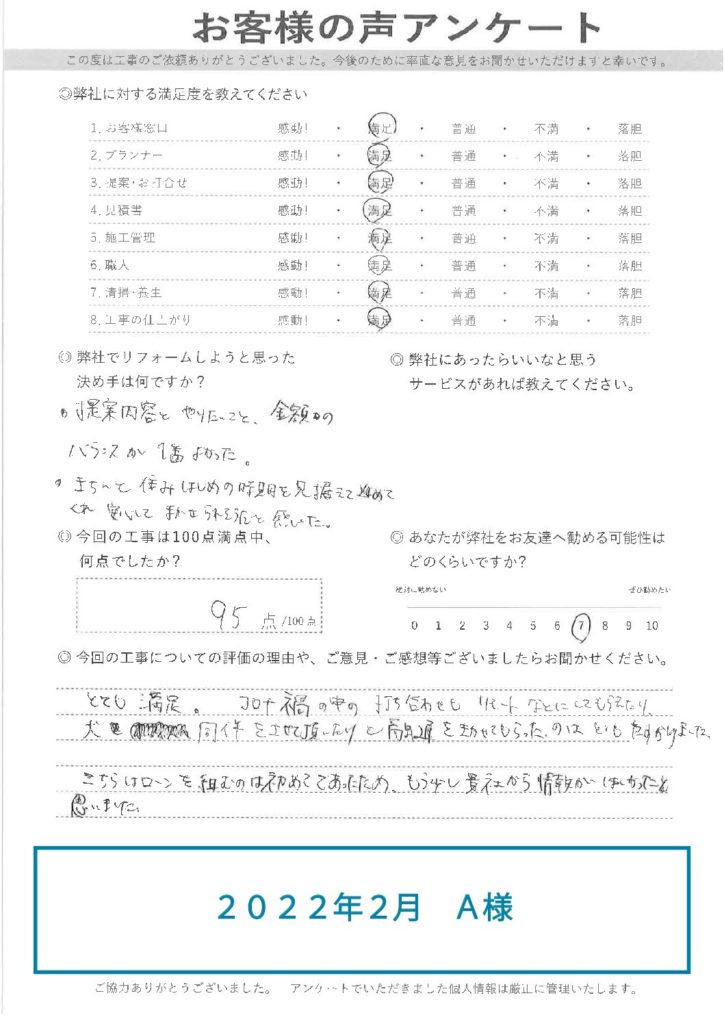 お客様の声アンケート
この度は工事のご依頼ありがとうございました。今後のために率直な意見をお聞かせいただけますと幸いです。
◎弊社に対する満足度を教えてください
1.お客様窓口 感動! ・ 満足 ・ 普通 ・ 不満 ・ 落胆
2.プランナー 感動! ・ 満足 ・ 普通 ・ 不満 ・ 落胆
3.提案・お打合せ 感動! ・ 満足 ・ 普通 ・ 不満 ・ 落胆
4.見積書 感動! ・ 満足 ・ 普通 ・ 不満 ・ 落胆
5.施工管理 感動! ・ 満足 ・ 普通 ・ 不満 ・ 落胆
6.職人 感動! ・ 満足 ・ 普通 ・ 不満 ・ 落胆
7.清掃・養生 感動! ・ 満足 ・ 普通 ・ 不満 ・ 落胆
8.工事の仕上がり 感動! ・ 満足 ・ 普通 ・ 不満 ・ 落胆
◎弊社でリフォームしようと思った
決め手は何ですか?
提案内容と やりたいこと、金額の
バランスが 1番よかった。
きちんと 住みはじめの時期を見据えて進めて
くれ 安心して まかせられそうだと 感じた。
◎弊社にあったらいいなと思う
サービスがあれば教えてください。
◎今回の工事は100点満点中、
何点でしたか?
95 点 /100点
◎あなたが弊社をお友達へ勧める可能性は
どのくらいですか?
絶対に勧めない ぜひ勧めたい
0 1 2 3 4 5 6 7 8 9 10
◎今回の工事についての評価の理由や、ご意見・ご感想等ございましたらお聞かせください。
とても 満足。 コロナ禍の中の 打ち合わせも リモートなどにしてもらえたり、
犬 同伴をさせて頂いたりと 融通をきかせてもらったのは とても たすかりました。
こちらはローンを組むのは初めてであったため、もう少し貴社から情報がほしかったと
思いました。
2022年2月 A様
ご協力ありがとうございました。 アンケートでいただきました個人情報は厳正に管理いたします。